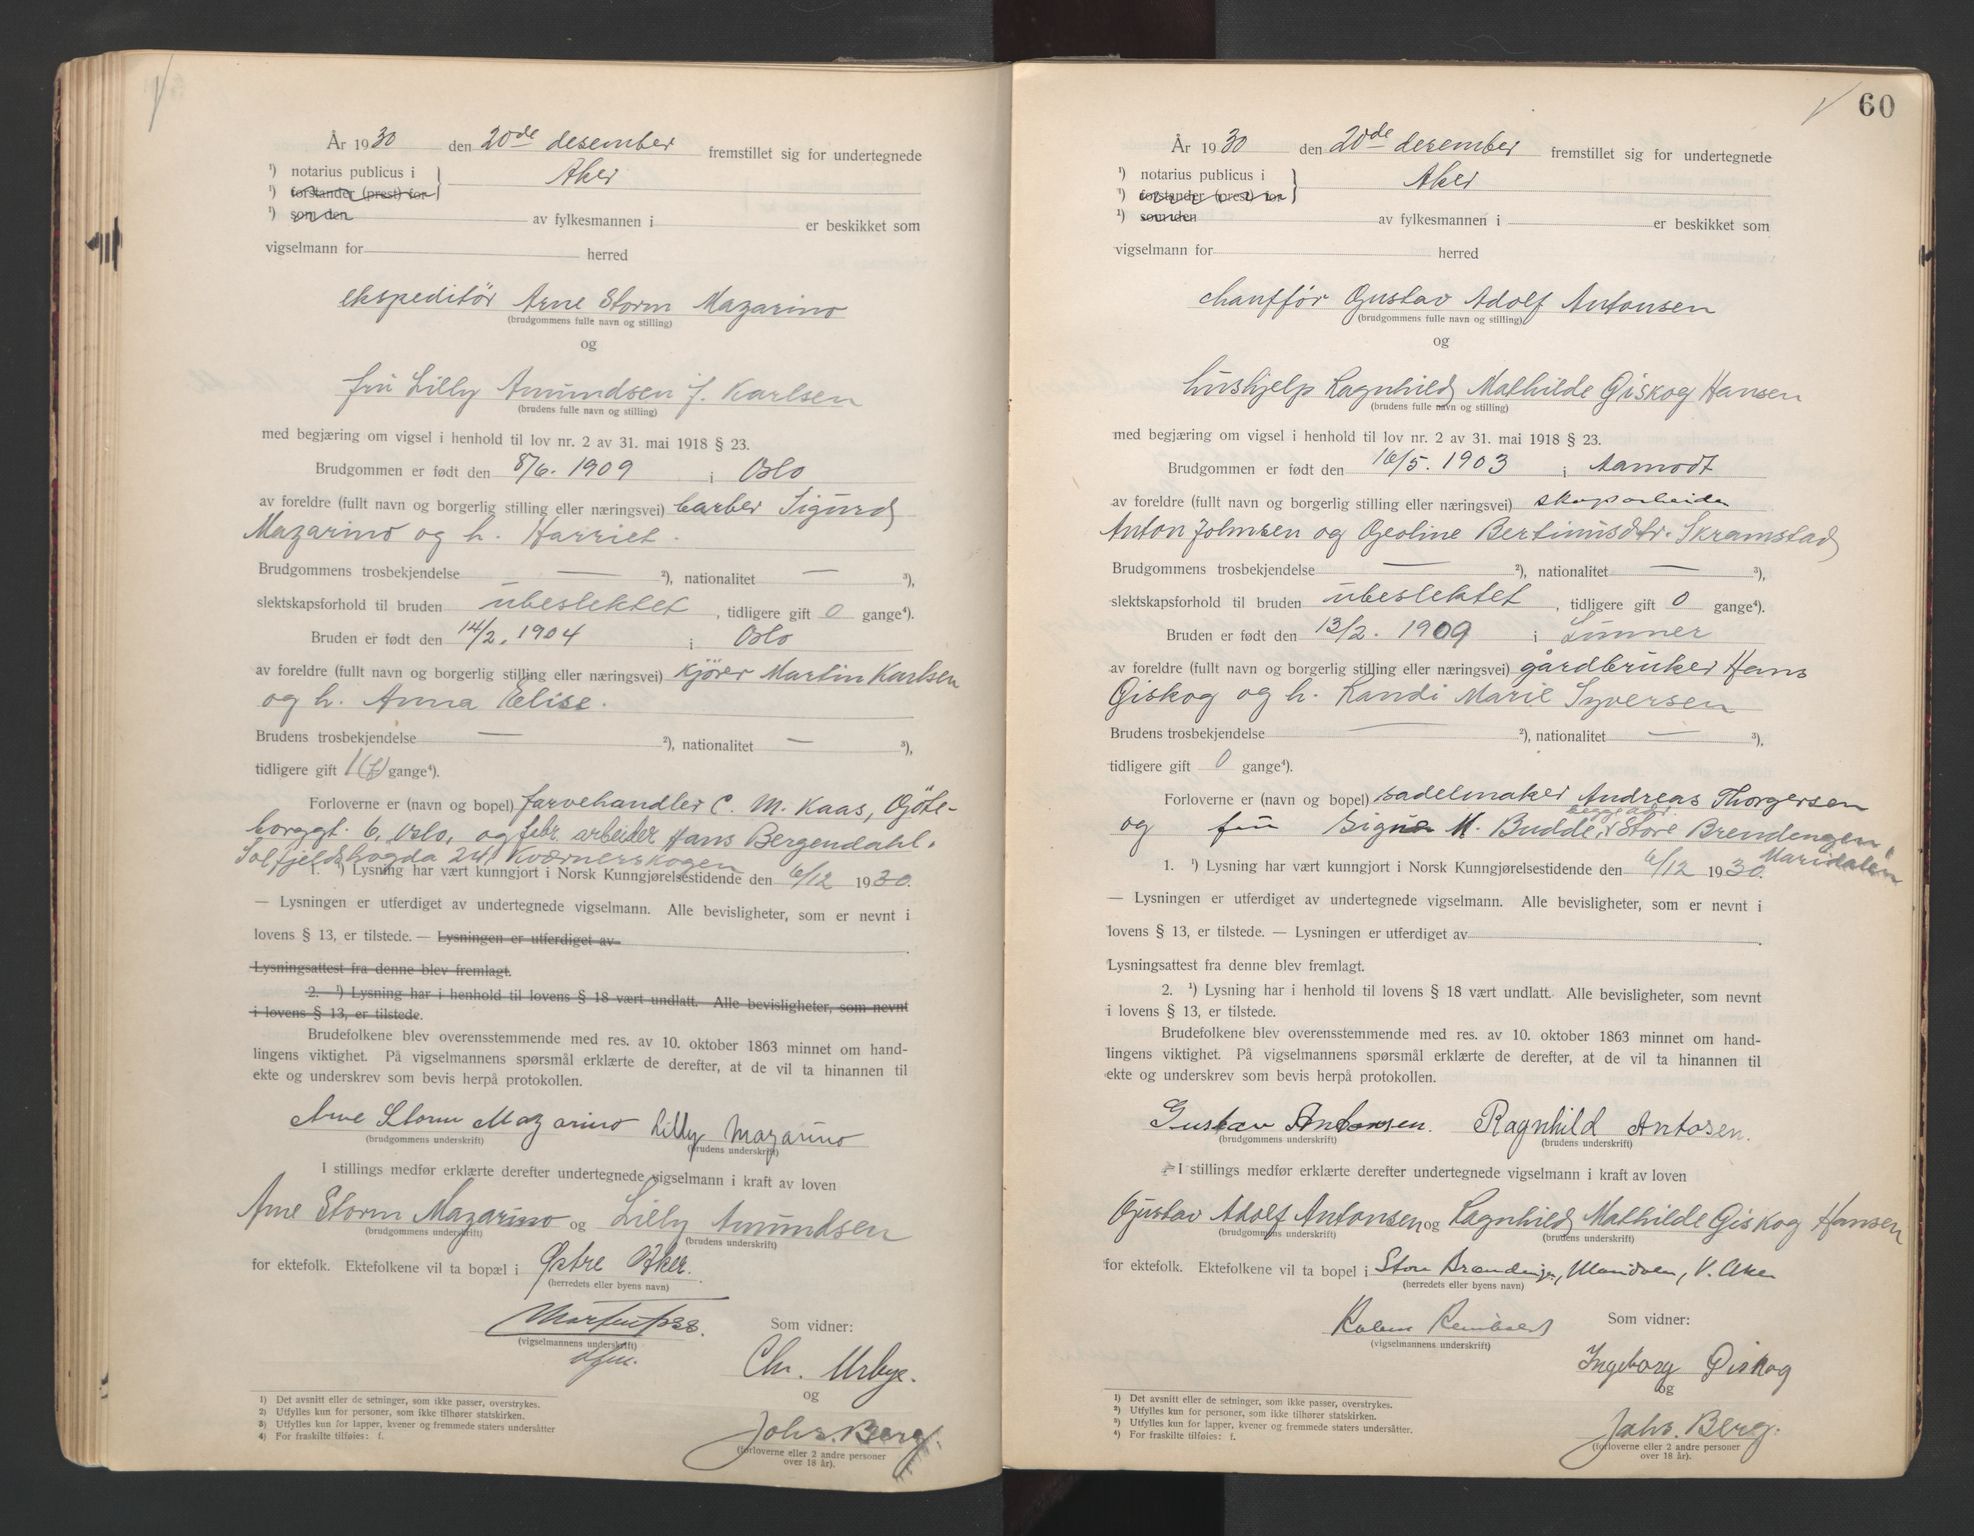 År 1930 den 20de desember fremstillet sig for undertegnede
¹) notarius publicus i Aker
¹) forstander (prest) for
¹) som den av fylkesmannen i er beskikket som
vigselmann for herred
ekspeditör Arne Storm Mazarino
(brudgommens fulle navn og stilling)
og
fru Lilly Amundsen f. Karlsen
(brudens fulle navn og stilling)
med begjæring om vigsel i henhold til lov nr. 2 av 31. mai 1918 § 23.
Brudgommen er født den 8/6. 1909 i Oslo
av foreldre (fullt navn og borgerlig stilling eller næringsvei) barber Sigurd
Mazarino og h. Harriet.
Brudgommens trosbekjendelse — ²), nationalitet — ³),
slektskapsforhold til bruden ubeslektet, tidligere gift 0 gange⁴).
Bruden er født den 14/2. 1904 i Oslo
av foreldre (fullt navn og borgerlig stilling eller næringsvei) kjører Martin Karlsen
og h. Anna Elise.
Brudens trosbekjendelse — ²), nationalitet — ³),
tidligere gift 1 (f) gange⁴).
Forloverne er (navn og bopel) farvehandler C. M. Kaas, Gøte-
borggt. 6, Oslo, og fabr. arbeider Hans Bergendahl,
Solfjeldshøgda 24, Kværnerskogen
1. ¹) Lysning har vært kunngjort i Norsk Kunngjørelsestidende den 6/12 1930.
— Lysningen er utferdiget av undertegnede vigselmann. Alle bevisligheter, som er nevnt i
lovens § 13, er tilstede. — Lysningen er utferdiget av
Lysningsattest fra denne blev fremlagt.
2. ¹) Lysning har i henhold til lovens § 18 vært undlatt. Alle bevisligheter, som nevnt
i lovens § 13, er tilstede.
Brudefolkene blev overensstemmende med res. av 10. oktober 1863 minnet om hand-
lingens viktighet. På vigselmannens spørsmål erklærte de derefter, at de vil ta hinannen til
ekte og underskrev som bevis herpå protokollen.
Arne Storm Mazarino Lilly Mazarino
(brudgommens underskrift) (brudens underskrift)
I stillings medfør erklærte derefter undertegnede vigselmann i kraft av loven
Arne Storm Mazarino og Lilly Amundsen
(brudgommens underskrift) (brudens underskrift)
for ektefolk. Ektefolkene vil ta bopæl i Østre Aker.
(herredets eller byens navn)
Som vidner:
(vigselmannens underskrift)
Chr. Urbye.
og
Johs. Berg.
(forloverne eller 2 andre personer
over 18 år).
1) Det avsnitt eller de setninger, som ikke passer, overstrykes.
2) Utfylles kun for personer, som ikke tilhører statskirken.
3) Utfylles kun for lapper, kvener og fremmede staters undersåtter
4) For fraskilte tilføies: f.
60
År 1930 den 20de desember fremstillet sig for undertegnede
¹) notarius publicus i Aker
¹) forstander (prest) for
¹) som den av fylkesmannen i er beskikket som
vigselmann for herred
chaufför Gustav Adolf Antonsen
(brudgommens fulle navn og stilling)
og
hushjelp Ragnhild Mathilde Giskog Hansen
(brudens fulle navn og stilling)
med begjæring om vigsel i henhold til lov nr. 2 av 31. mai 1918 § 23.
Brudgommen er født den 16/5. 1903 i Aamodt
av foreldre (fullt navn og borgerlig stilling eller næringsvei) skogsarbeider
Anton Johnsen og Oeoline Bertinusdtr. Skramstad
Brudgommens trosbekjendelse — ²), nationalitet — ³),
slektskapsforhold til bruden ubeslektet, tidligere gift 0 gange⁴).
Bruden er født den 13/2. 1909 i Lunner
av foreldre (fullt navn og borgerlig stilling eller næringsvei) gårdbruker Hans
Giskog og h. Randi Marie Syversen
Brudens trosbekjendelse — ²), nationalitet — ³),
tidligere gift 0 gange⁴).
Forloverne er (navn og bopel) sadelmaker Andreas Thorgersen
og fru Signe M. Budde, begge adr. Store Brendengen,
Maridalen
1. ¹) Lysning har vært kunngjort i Norsk Kunngjørelsestidende den 6/12 1930.
— Lysningen er utferdiget av undertegnede vigselmann. Alle bevisligheter, som er nevnt i
lovens § 13, er tilstede. — Lysningen er utferdiget av
Lysningsattest fra denne blev fremlagt.
2. ¹) Lysning har i henhold til lovens § 18 vært undlatt. Alle bevisligheter, som nevnt
i lovens § 13, er tilstede.
Brudefolkene blev overensstemmende med res. av 10. oktober 1863 minnet om hand-
lingens viktighet. På vigselmannens spørsmål erklærte de derefter, at de vil ta hinannen til
ekte og underskrev som bevis herpå protokollen.
Gustav Antonsen. Ragnhild Antosen.
(brudgommens underskrift) (brudens underskrift)
I stillings medfør erklærte derefter undertegnede vigselmann i kraft av loven
Gustav Adolf Antonsen og Ragnhild Mathilde Giskog Hansen
(brudgommens underskrift) (brudens underskrift)
for ektefolk. Ektefolkene vil ta bopel i Store Brændingen, Maridalen, V. Aker
(herredets eller byens navn)
Som vidner:
(vigselmannens underskrift)
Ingeborg Giskog
og
Johs. Berg.
(forloverne eller 2 andre personer
over 18 år).
1) Det avsnitt eller de setninger, som ikke passer, overstrykes.
2) Utfylles kun for personer, som ikke tilhører statskirken.
3) Utfylles kun for lapper, kvener og fremmede staters undersåtter.
4) For fraskilte tilføies: f.